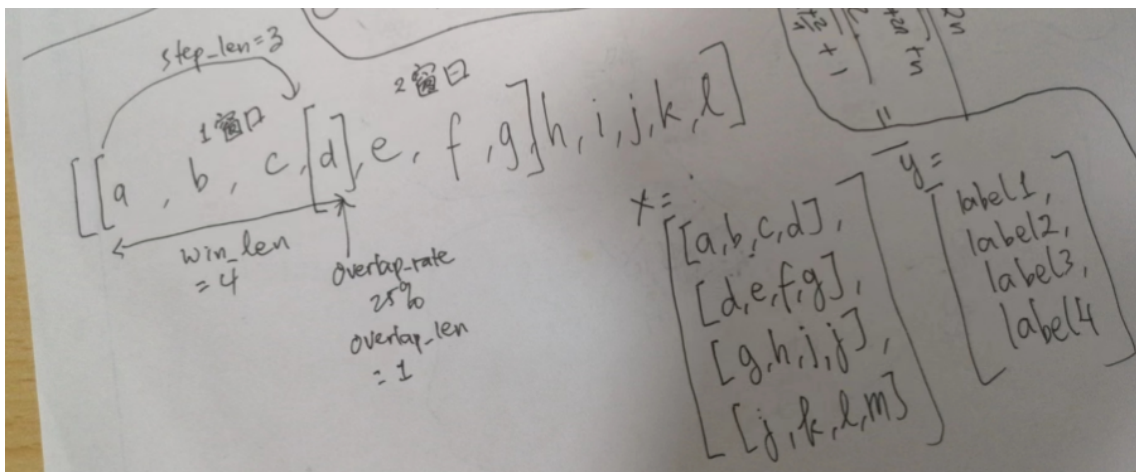 step_len=3
1窗口
2窗口
[[a , b , c,[d],e, f ,g]h, i,j,k,l]
win_len
= 4
overlap_rate
25%
overlap_len
= 1
x=
[[a,b,c,d],
[d,e,f,g],
[g,h,j,j],
[j,k,l,m]]
y=
[label1,
label2,
label3,
label4]
2n